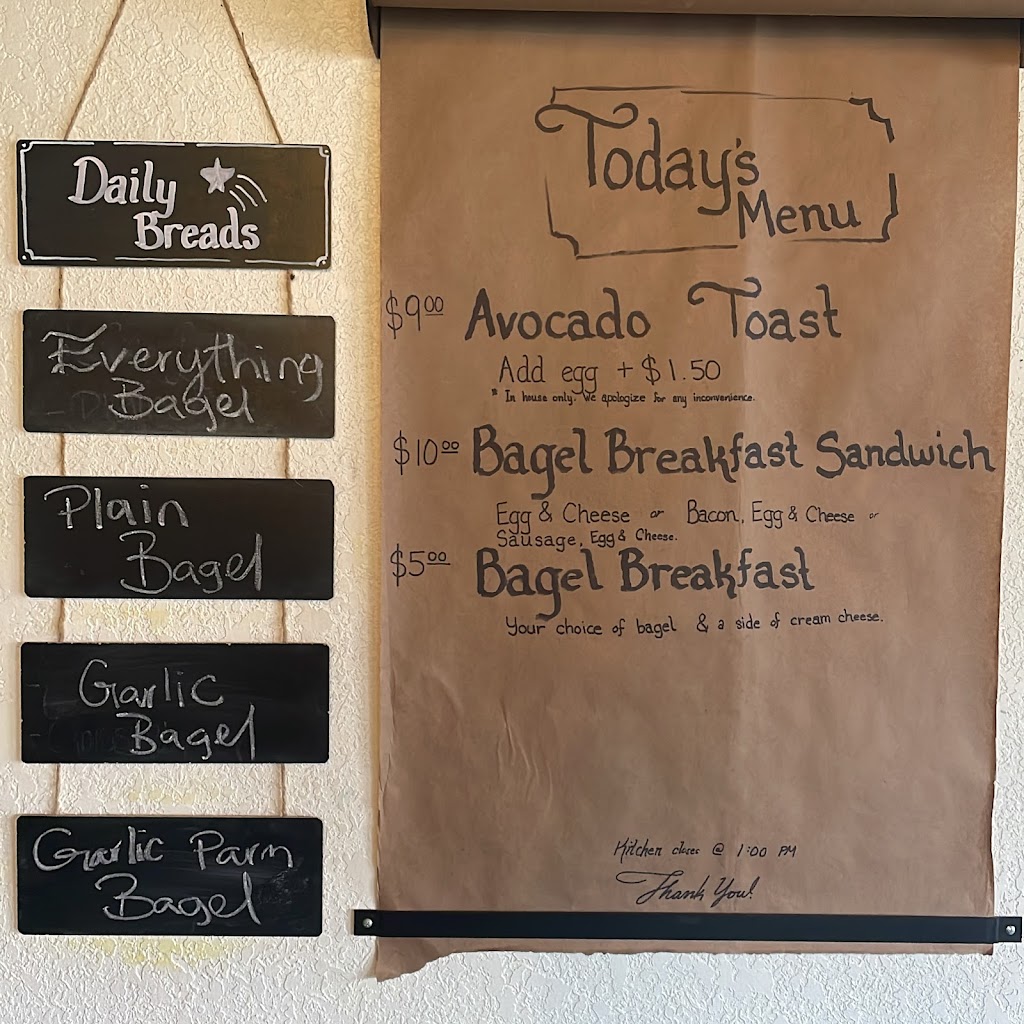 Daily
Breads
Everything
Bagel
Plain
Bagel
Garlic
Bagel
Garlic Parm
Bagel
Today's
Menu
$9.00 Avocado Toast
Add egg + $1.50
* In house only. We apologize for any inconvenience.
$10.00 Bagel Breakfast Sandwich
Egg & Cheese or Bacon, Egg & Cheese or
Sausage, Egg & Cheese.
$5.00 Bagel Breakfast
Your choice of bagel & a side of cream cheese.
Kitchen closes @ 1:00 PM
Thank You!